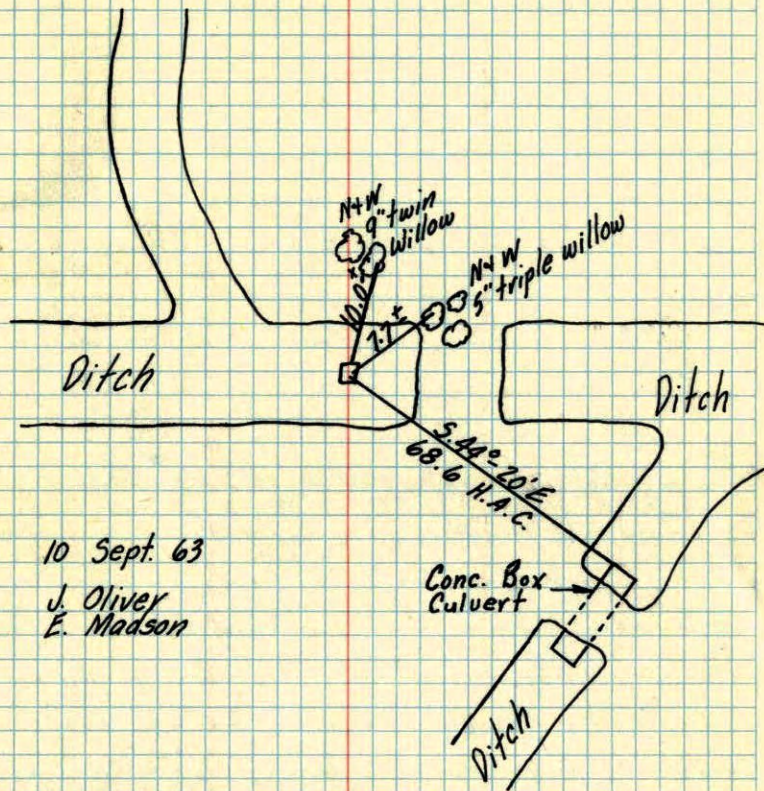 N+W
9" twin
Willow
10.0±
N+W
5" triple willow
7.7±
Ditch
Ditch
S.44°-20'E
68.6 H.A.C.
10 Sept. 63
J. Oliver
E. Madson
Conc. Box
Culvert
Ditch